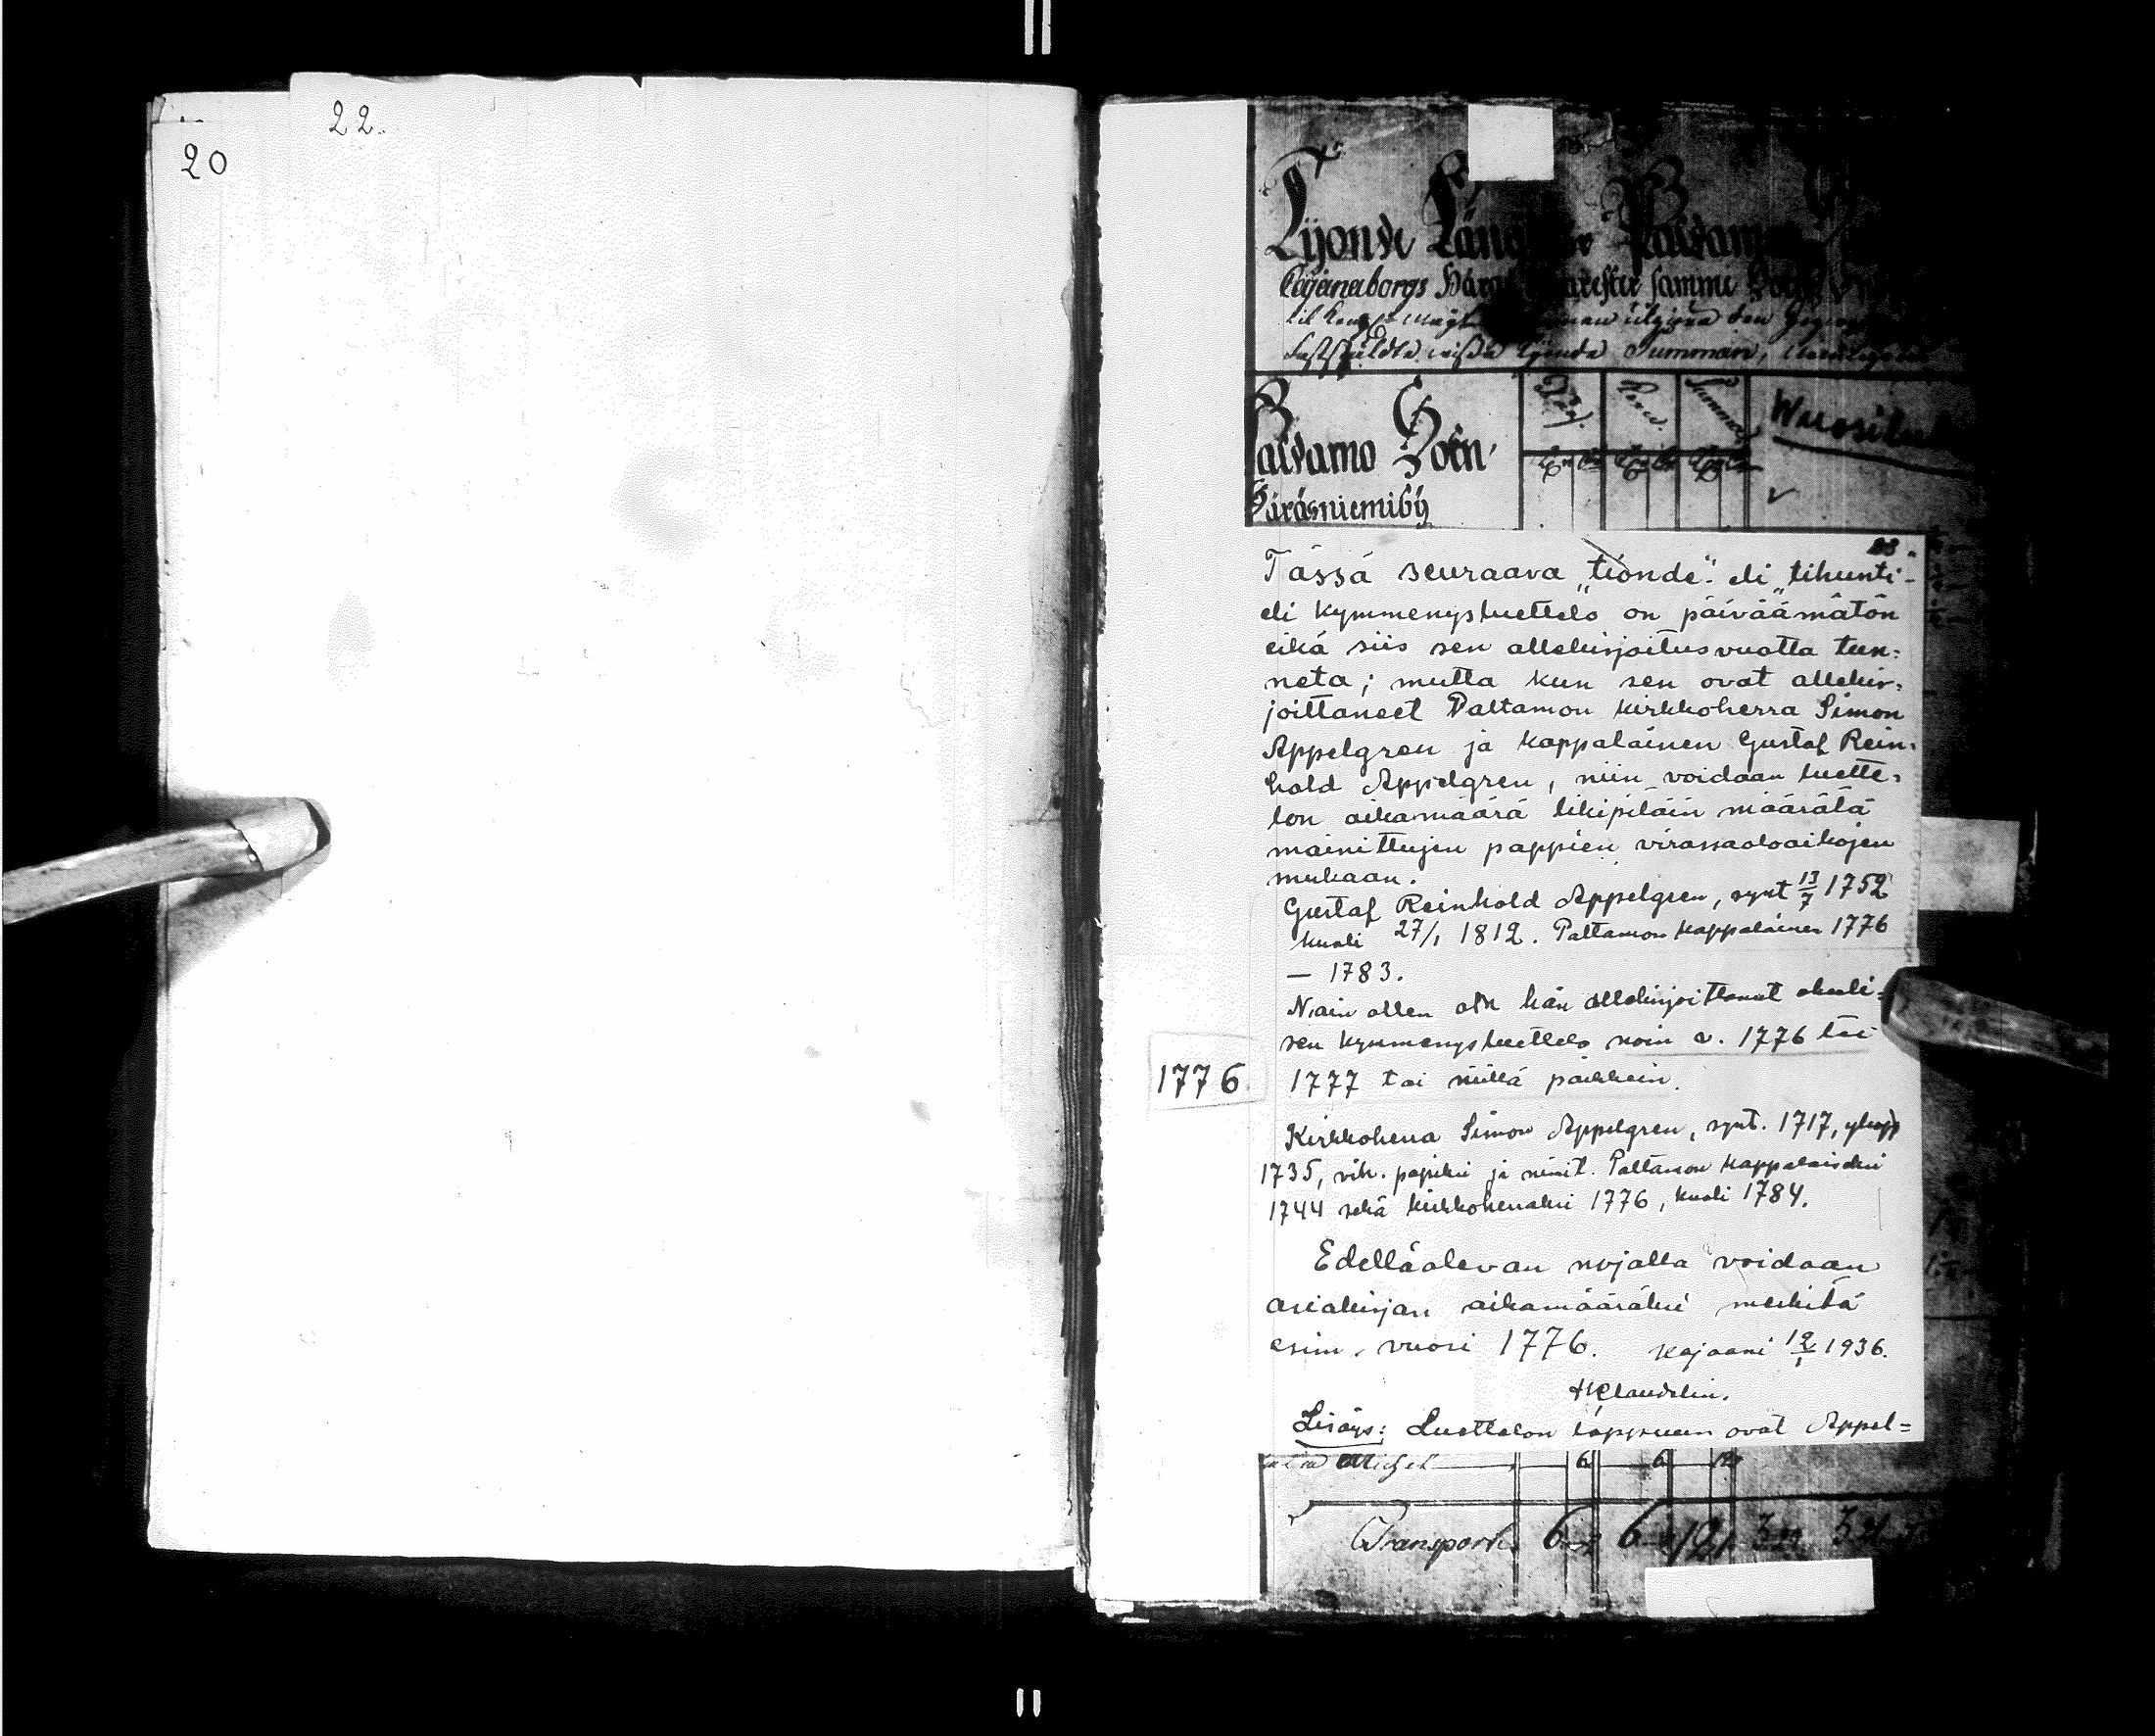 22.
20
Tijonde Läng Paldamo
Cajanaborgs Härad samme Sockn
Summan,
Paldamo Sokn
Wuosilu
Säräsniemi by
23.
Tässä seuraava "tionde" eli "tihunti-
eli kymmenysluettelo on päiväämätön
eikä siis sen allekirjoitusvuotta tun=
neta; mutta kun sen ovat allekir=
joittaneet Paltamon kirkkoherra Simon
Appelgren ja kappalainen Gustaf Rein=
hold Appelgren, niin voidaan luette=
lon aikamäärä likipitäin määrätä
mainittujen pappien virassaoloaikojen
mukaan.
Gustaf Reinhold Appelgren, synt 13/7 1752
kuoli 27/1 1812. Paltamon kappalainen 1776
— 1783.
Näin ollen on hän allekirjoittanut oheeli=
sen kymmenysluettelo noin v. 1776 tai
1776
1777 tai niillä paikkein.
Kirkkoherra Simon Appelgren, synt. 1717, yliopp
1735, vih. papiksi ja nimit. Paltamon kappalaiseksi
1744 sekä kirkkoherraksi 1776, kuoli 1784.
Edelläolevan nojalla voidaan
asiakirjan aikamääräksi merkitä
esim. vuosi 1776. Kajaani 12/1 1936.
Lisäys: Luettelon loppuun ovat Appel=
Michel 6 6 12
Transport 6 6 12